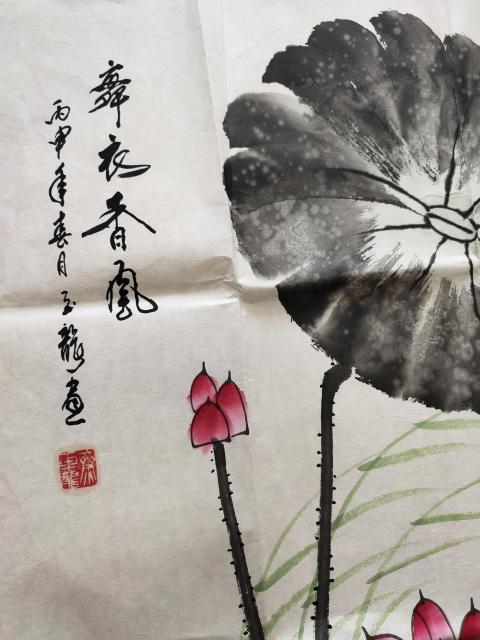 舞衣香風
丙申年春月玉龍畫